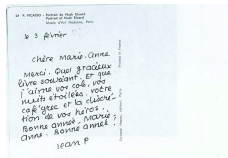 24 P. PICASSO - Portrait de Nush Eluard
Portrait of Nush Eluard
Musée d'Art Moderne, Paris
le 3 février
Chère Marie-Anne
Merci. Quel gracieux
livre souriant, et que
j'aime vos cols, vos
nuits étoilées, votre
café grec et la discré-
tion de vos héros.
Bonne année, Marie-
Anne. Bonne année!
Jean P
Printed in France